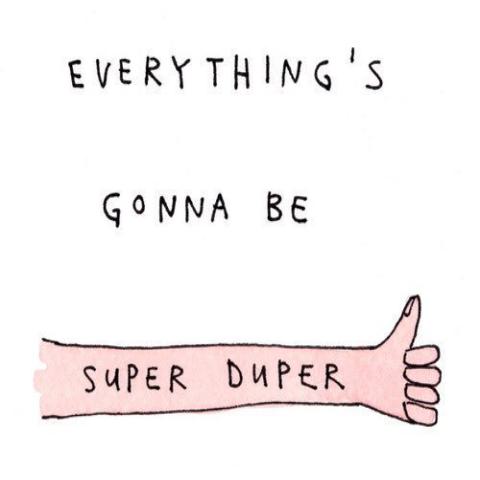 EVERYTHING'S
GONNA BE
SUPER DUPER